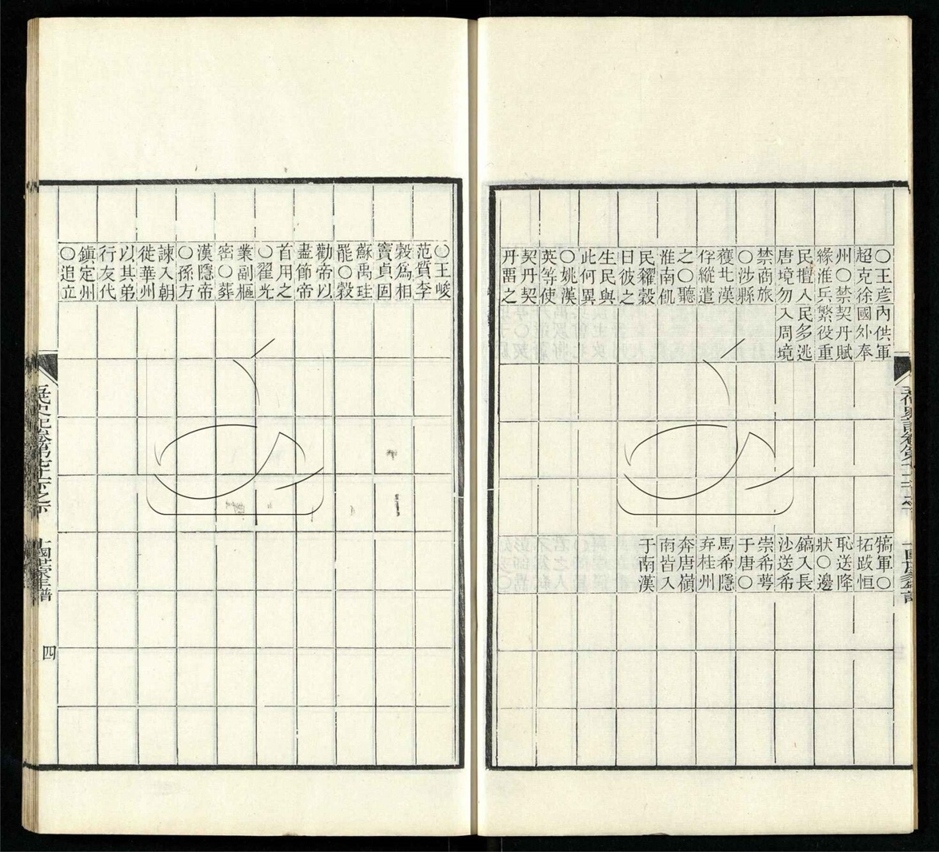 ○王彥內供軍
超克徐國外奉
州○禁契丹賦
緣淮兵繁役重
民擅入民多逃
唐境勿入周境
禁商旅
○涉縣
獲北漢
俘縱遣
之○聽
淮南飢
民糴穀
曰彼之
生民與
此何異
○姚漢
英等使
契丹契
丹畱之
犒軍○
拓跋恒
恥送降
狀○邊
鎬入長
沙送希
崇希萼
于唐○
馬希隱
弃桂州
奔唐嶺
南皆入
于南漢
○王峻
范質李
穀爲相
竇貞固
蘇禹珪
罷○穀
勸帝以
盡節帝
首用之
○翟光
鄴副樞
密○葬
漢隱帝
○孫方
諫入朝
徙華州
以其弟
行友代
鎮定州
○追立
四